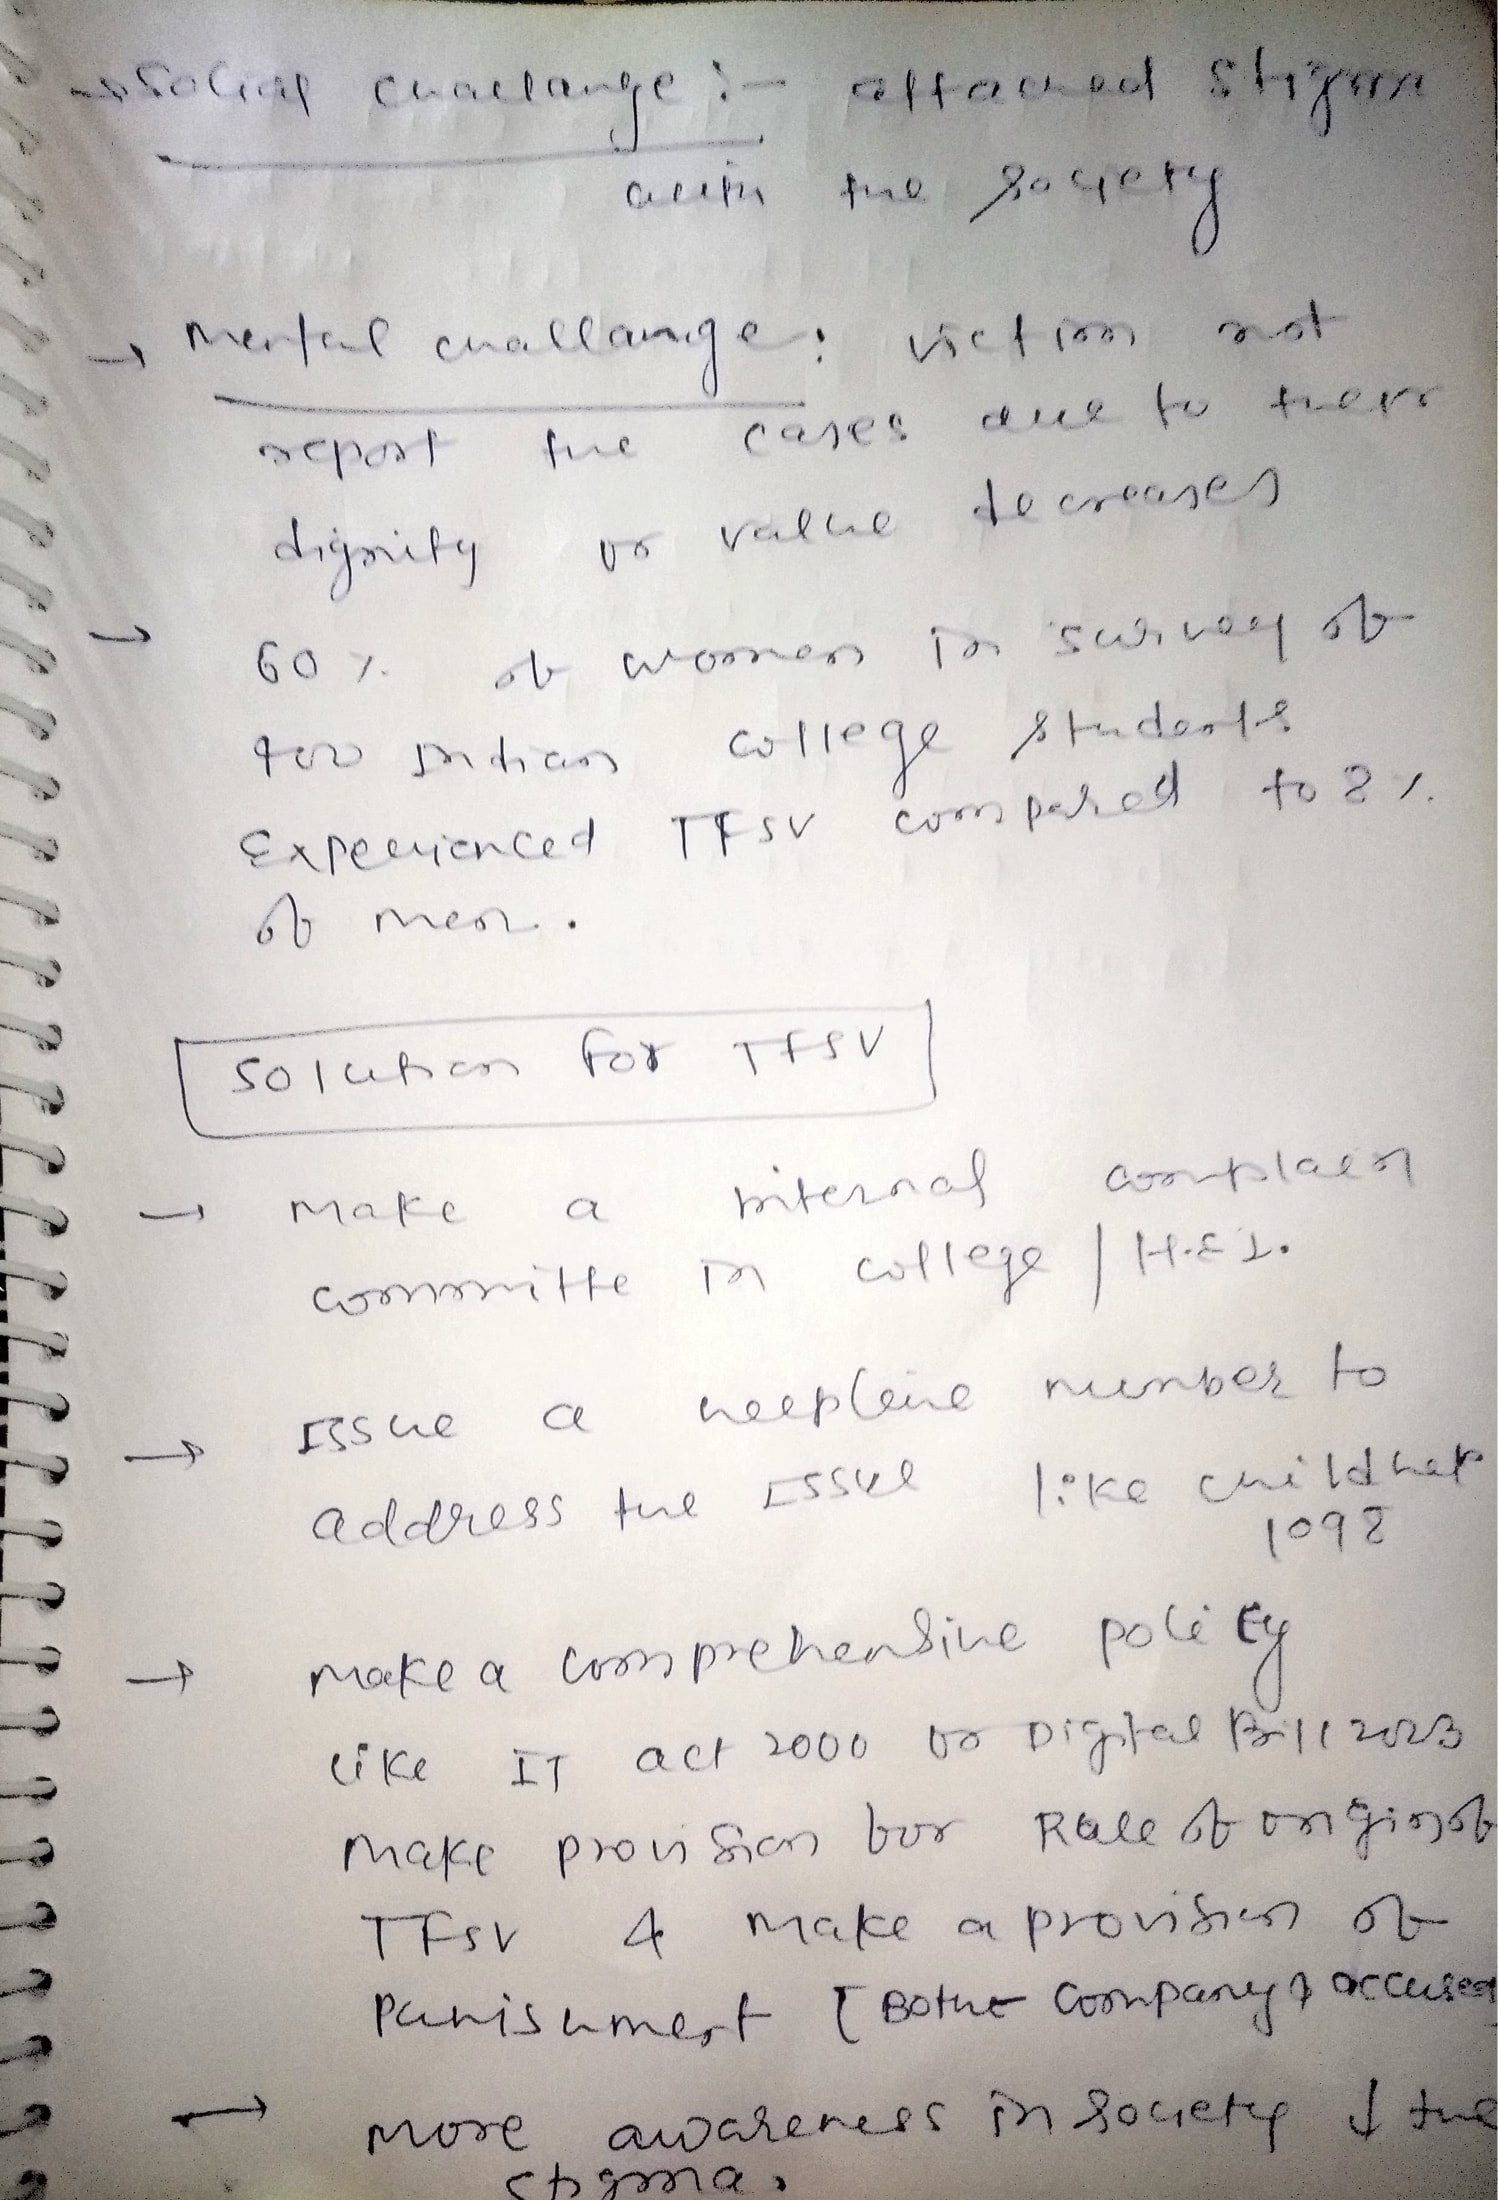 → Social challange :- attached stigma
with the society
→ Mental challange : victim not
report the cases due to their
dignity or value decreases
→ 60 % of women in survey of
400 Indian college students
Experienced TFSV compared to 8 %
of men .
Solution for TFSV
→ Make a internal complain
committe in college / H.E.I.
→ Issue a helpline number to
address the Issue like child help
1098
→ Make a comprehensive policy
like IT act 2000 or Digital Bill 2023
Make provision for Rule of origin of
TFSV & make a provision of
Punishment [ Bothe company & accused
→ More awareness in society ↓ the
stigma.